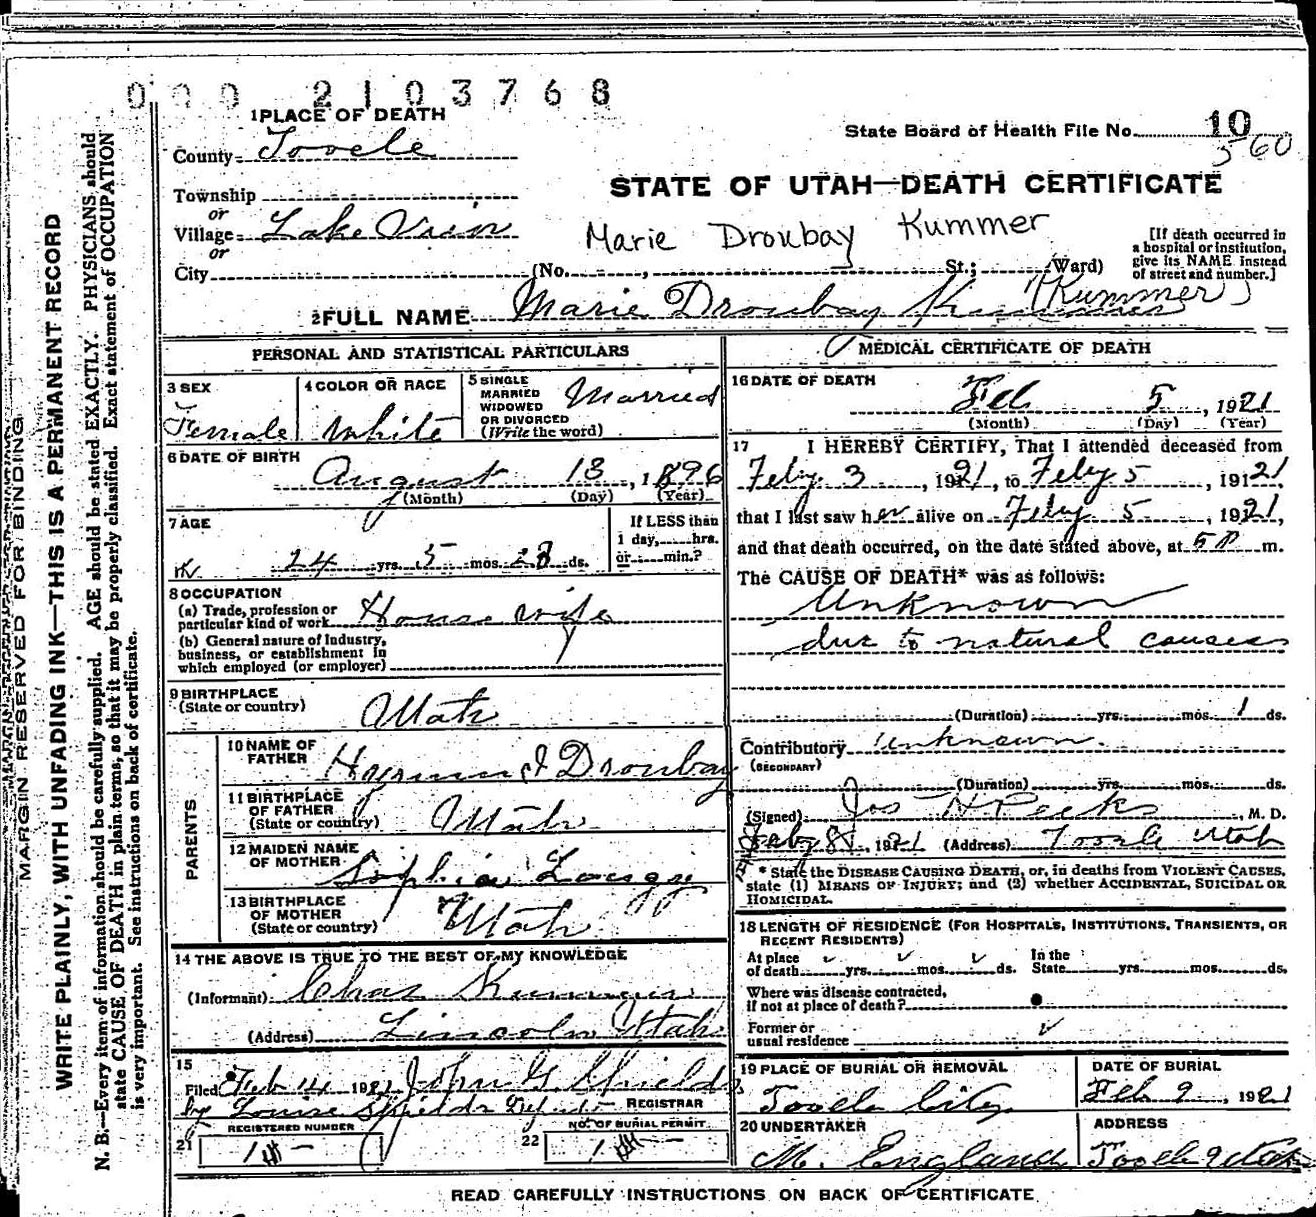 000 2103768
1 PLACE OF DEATH
State Board of Health File No. 10
560
County Tooele
STATE OF UTAH—DEATH CERTIFICATE
Township
or
Village Lake View
or
Marie Droubay Kummer
[If death occurred in
a hospital or institution,
give its NAME instead
of street and number.]
City (No. , St.; Ward)
(Kummer)
2 FULL NAME Marie Droubay Kummer
PERSONAL AND STATISTICAL PARTICULARS
3 SEX
Female
4 COLOR OR RACE
White
5 SINGLE
MARRIED
WIDOWED
OR DIVORCED
(Write the word)
Married
6 DATE OF BIRTH
August 13, 1896
(Month) (Day) (Year)
7 AGE
24 yrs. 5 mos. 23 ds.
If LESS than
1 day, hrs.
or min.?
8 OCCUPATION
(a) Trade, profession or
particular kind of work House wife
(b) General nature of Industry,
business, or establishment in
which employed (or employer)
9 BIRTHPLACE
(State or country)
Utah
PARENTS
10 NAME OF
FATHER
Droubay
11 BIRTHPLACE
OF FATHER
(State or country)
Utah
12 MAIDEN NAME
OF MOTHER
Sophia
13 BIRTHPLACE
OF MOTHER
(State or country)
Utah
14 THE ABOVE IS TRUE TO THE BEST OF MY KNOWLEDGE
(Informant) Chas Kummer
(Address) Lincoln Utah
15
Filed Feb 14 1921 John G Shields
by Louise Shields Deputy REGISTRAR
21 REGISTERED NUMBER
1
22 NO. OF BURIAL PERMIT
1
MEDICAL CERTIFICATE OF DEATH
16 DATE OF DEATH
Feb 5, 1921
(Month) (Day) (Year)
17 I HEREBY CERTIFY, That I attended deceased from
Feby 3, 1921, to Feby 5, 191 21,
that I last saw her alive on Feby 5, 1921,
and that death occurred, on the date stated above, at 5 P m.
The CAUSE OF DEATH* was as follows:
Unknown
due to natural causes
(Duration) yrs. mos. 1 ds.
Contributory unknown.
(SECONDARY)
(Duration) yrs. mos. ds.
(Signed) Jos H Peeks, M. D.
Feby 8, 1921 (Address) Tooele Utah
* State the DISEASE CAUSING DEATH, or, in deaths from VIOLENT CAUSES,
state (1) MEANS OF INJURY; and (2) whether ACCIDENTAL, SUICIDAL OR
HOMICIDAL.
18 LENGTH OF RESIDENCE (FOR HOSPITALS, INSTITUTIONS, TRANSIENTS, OR
RECENT RESIDENTS)
At place
of death yrs. mos. ds.
In the
State yrs. mos. ds.
Where was disease contracted,
if not at place of death?
Former or
usual residence
19 PLACE OF BURIAL OR REMOVAL
Tooele City
DATE OF BURIAL
Feb 9, 1921
20 UNDERTAKER
M. England
ADDRESS
Tooele Utah
READ CAREFULLY INSTRUCTIONS ON BACK OF CERTIFICATE
MARGIN RESERVED FOR BINDING
WRITE PLAINLY, WITH UNFADING INK—THIS IS A PERMANENT RECORD
N. B.—Every item of information should be carefully supplied. AGE should be stated EXACTLY. PHYSICIANS should
state CAUSE OF DEATH in plain terms, so that it may be properly classified. Exact statement of OCCUPATION
is very important. See instructions on back of certificate.